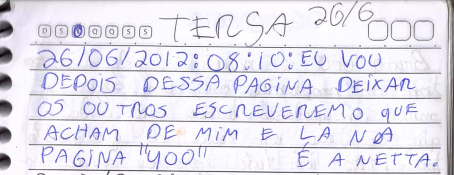 D S T Q Q S S TERSA 26/6
26/06/2012:08:10:EU VOU
DEPOIS DESSA PAGINA DEIXAR
OS OUTROS ESCREVEREM O QUE
ACHAM DE MIM E LA NA
PAGINA "400" É A NETTA.